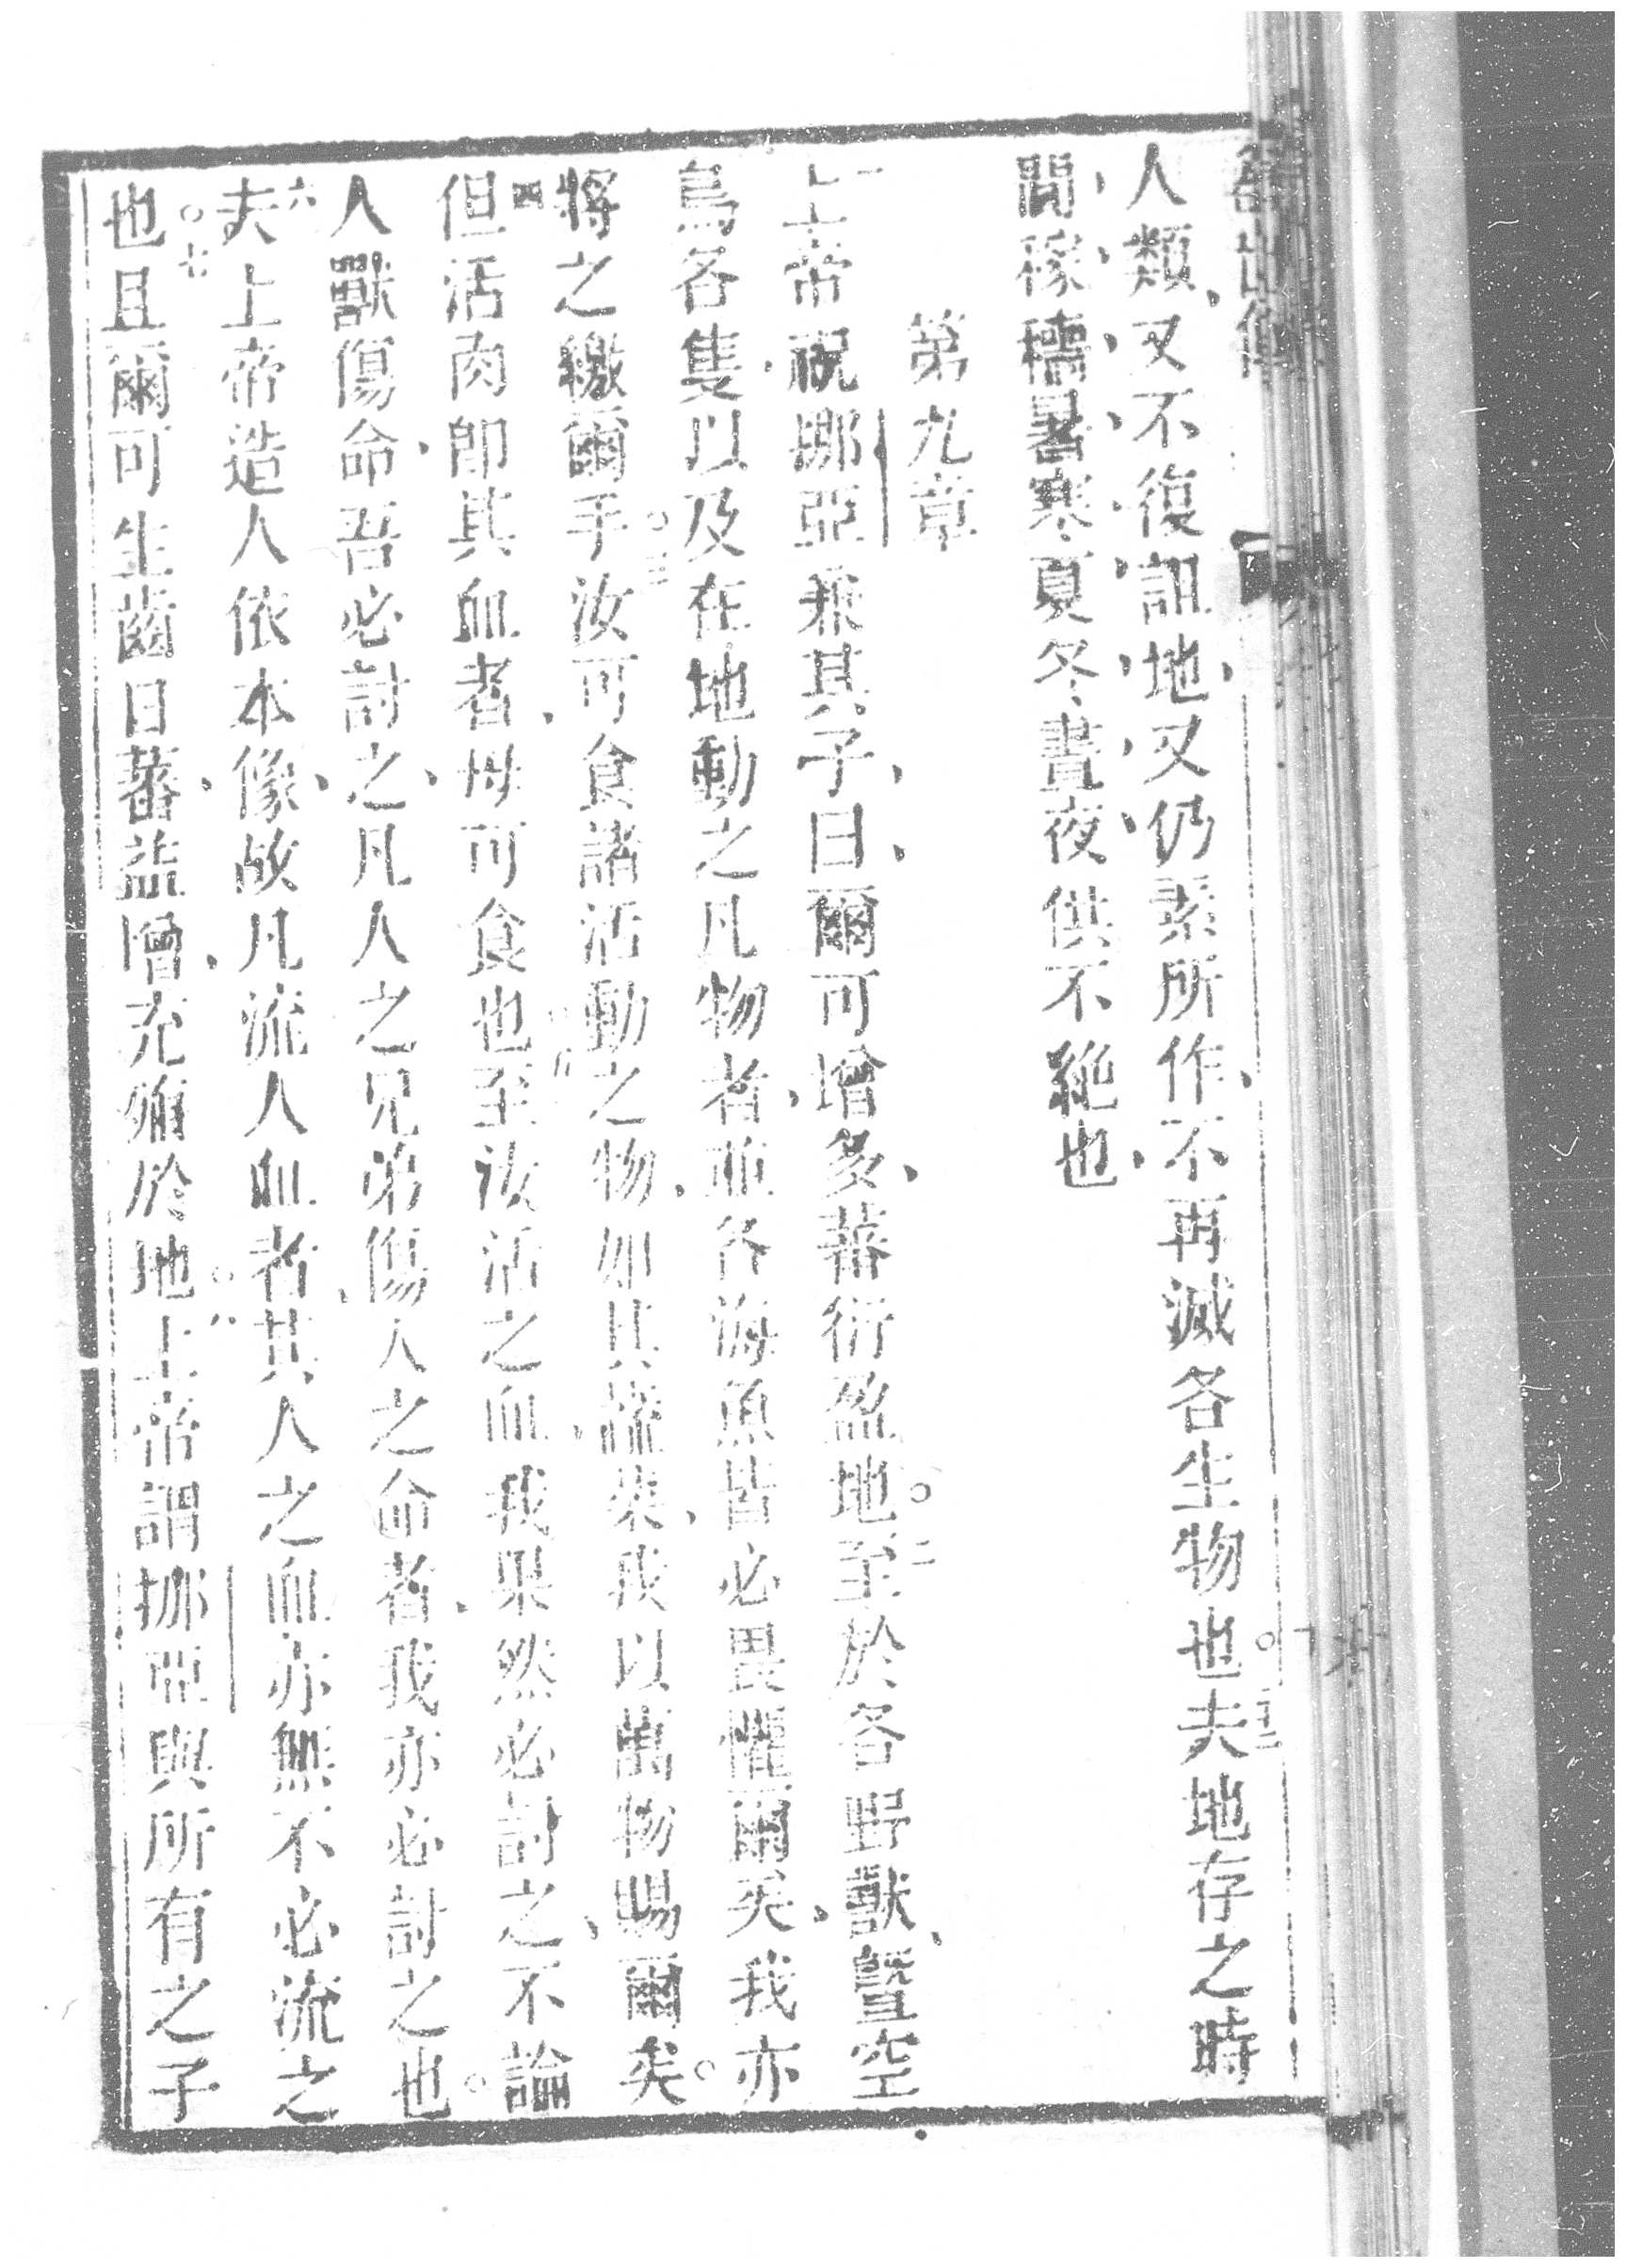 人類、又不復詛地、又仍素所作、不再滅各生物也○夫地存之時
間、稼、穡、暑、寒、夏、冬、晝、夜、供不絕也、
第九章
一上帝祝挪亞兼其子、曰、爾可增多、蕃衍盈地○二至於各野獸、暨空
鳥各隻、以及在地動之凡物者、並各海魚皆必畏懼爾矣、我亦
將之繳爾手○三汝可食諸活動之物、如其蔬菜、我以萬物賜爾矣○
四但活肉卽其血者、毋可食也○至汝活之血、我果然必討之、不論
人獸傷命、吾必討之、凡人之兄弟傷人之命者、我亦必討之也○
六夫上帝造人依本像、故凡流人血者、其人之血亦無不必流之
也○七且爾可生齒日蕃、益增、充殖於地○八上帝謂挪亞與所有之子